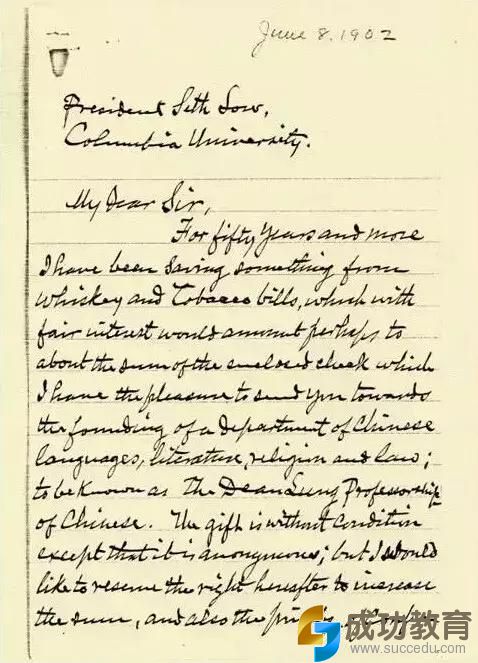 June 8. 1902
President Seth Low,
Columbia University.
My Dear Sir,
For fifty years and more
I have been saving something from
whiskey and Tobacco bills, which with
fair interest would amount perhaps to
about the sum of the enclosed check which
I have the pleasure to send you towards
the founding of a department of Chinese
languages, literature, religion and law;
to be known as the Dean Lung Professorship
of Chinese. The gift is without condition
except that it is anonymous; but I should
like to reserve the right hereafter to increase
the sum, and also the
成功教育
www.succedu.com